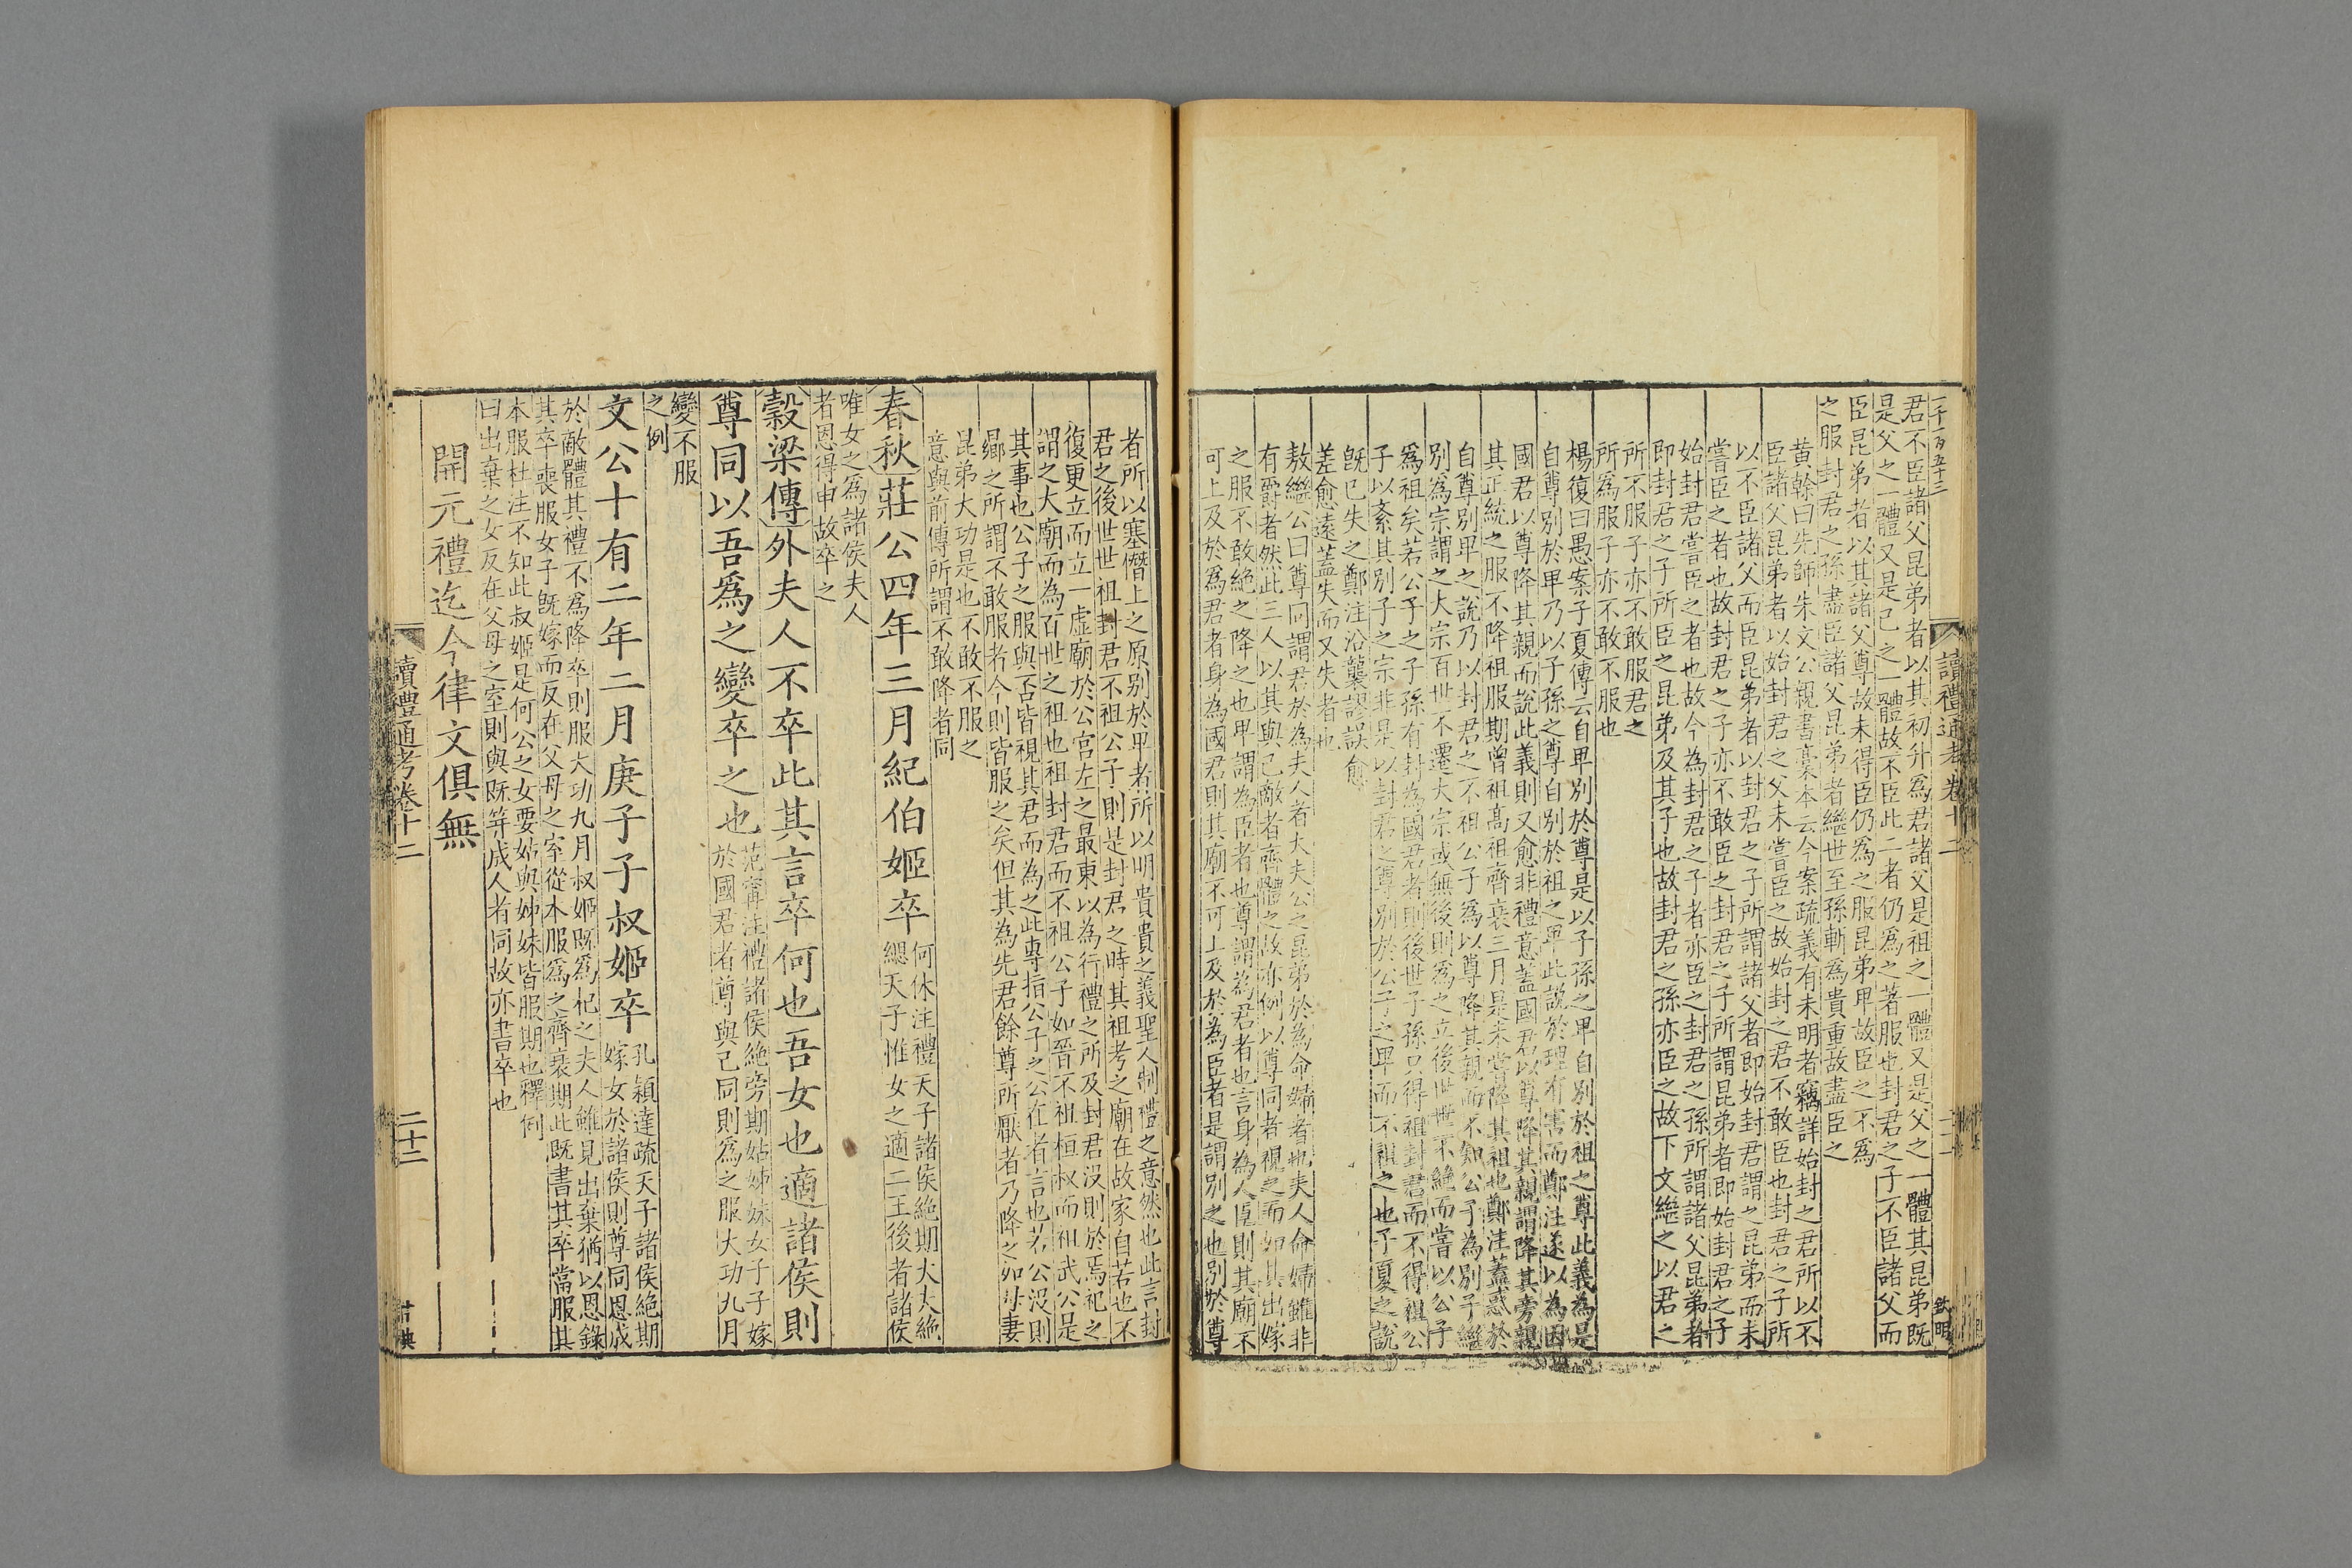 一千一百五十三
君不臣諸父昆弟者以其初升爲君諸父是祖之一體又是父之一體其昆弟既
是父之一體又是己之一體故不臣此二者仍爲之著服也封君之子不臣諸父而
臣昆弟者以其諸父尊故未得臣仍爲之服昆弟卑故臣之不爲
之服封君之孫盡臣諸父昆弟者繼世至孫漸爲貴重故盡臣之
黃榦曰先師朱文公親書稾本云今案疏義有未明者竊詳始封之君所以不
臣諸父昆弟者以始封君之父未嘗臣之故始封之君不敢臣也封君之子所
以不臣諸父而臣昆弟者以封君之子所謂諸父者即始封君謂之昆弟而未
嘗臣之者也故封君之子亦不敢臣之封君之子所謂昆弟者即始封君之子
始封君嘗臣之者也故今為封君之子者亦臣之封君之孫所謂諸父昆弟者
即封君之子所臣之昆弟及其子也故封君之孫亦臣之故下文繼之以君之
所不服子亦不敢服君之
所爲服子亦不敢不服也
楊復曰愚案子夏傳云自卑別於尊是以子孫之卑自別於祖之尊此義為是
自尊別於卑乃以子孫之尊自別於祖之卑此說於理有害而鄭注遂以為因
國君以尊降其親而說此義則又愈非禮意蓋國君以尊降其親謂降其旁親
其正統之服不降祖服期曾祖高祖齊衰三月是未嘗降其祖也鄭注蓋惑於
自尊別卑之說乃以封君之不祖公子爲以尊降其親而不知公子為別子繼
別爲宗謂之大宗百世不遷大宗或無後則爲之立後世世不絶而嘗以公子
爲祖矣若公子之子孫有封為國君者則後世子孫只得祖封君而不得祖公
子以紊其別子之宗非是以封君之尊別於公子之卑而不祖之也子夏之說
旣已失之鄭注沿襲謬誤愈
差愈遠蓋失而又失者也
敖繼公曰尊同謂君於為夫人者大夫公之昆弟於為命婦者也夫人命婦雖非
有爵者然此三人以其與己敵者齊體之故亦例以尊同者視之而如其出嫁
之服不敢絶之降之也卑謂為臣者也尊謂為君者也言身為人臣則其廟不
可上及於爲君者身為國君則其廟不可上及於為臣者是謂別之也別於尊
讀禮通考卷十二
者所以塞僭上之原別於卑者所以明貴貴之義聖人制禮之意然也此言封
君之後世世祖封君不祖公子則是封君之時其祖考之廟在故家自若也不
復更立而立一虛廟於公宮左之最東以為行禮之所及封君沒則於焉祀之
謂之大廟而為百世之祖也祖封君而不祖公子如晉不祖桓叔而祖武公是
其事也公子之服與否皆視其君而為之此專指公子之公在者言也若公沒則
曏之所謂不敢服者今則皆服之矣但其為先君餘尊所厭者乃降之如母妻
昆弟大功是也不敢不服之
意與前傳所謂不敢降者同
春秋莊公四年三月紀伯姬卒 何休注禮天子諸侯絶期大夫絶
緦天子惟女之適二王後者諸侯
唯女之爲諸侯夫人
者恩得申故卒之
穀梁傳外夫人不卒此其言卒何也吾女也適諸侯則
尊同以吾爲之變卒之也 范甯注禮諸侯絶旁期姑姊妹女子子嫁
於國君者尊與己同則爲之服大功九月
變不服
之例
文公十有二年二月庚子子叔姬卒 孔穎達疏天子諸侯絶期
嫁女於諸侯則尊同恩成
於敵體其禮不為降卒則服大功九月叔姬既爲杞之夫人雖見出棄猶以恩錄
其卒喪服女子旣嫁而反在父母之室從本服爲之齊衰期此既書其卒當服其
本服杜注不知此叔姬是何公之女要姑與姊妹皆服期也釋例
曰出棄之女反在父母之室則與既筓成人者同故亦書卒也
開元禮迄今律文俱無
讀禮通考卷十二
二十二